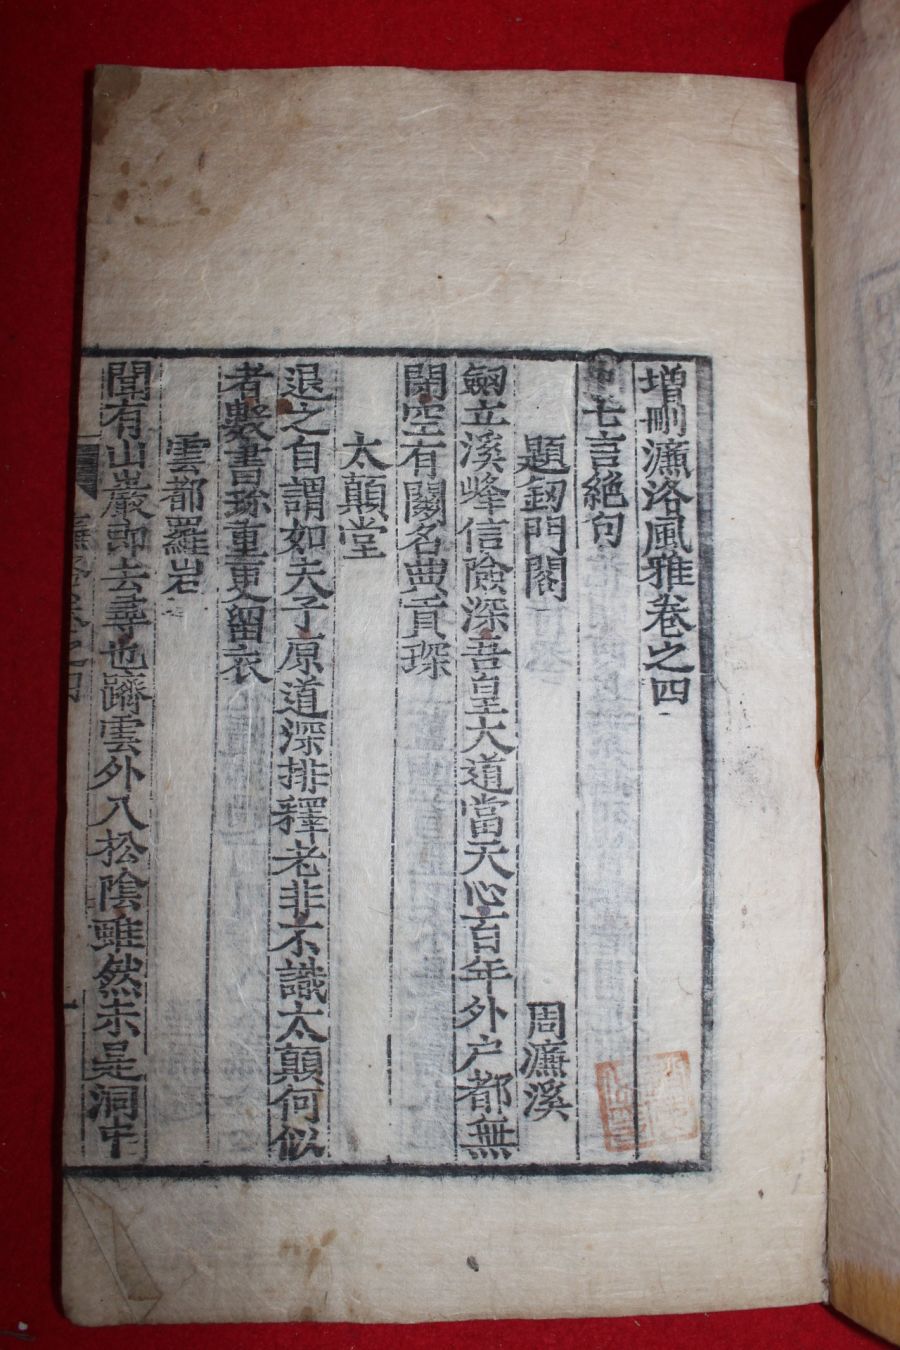 增刪濂洛風雅卷之四
七言絶句
題釰門閣
周濂溪
劒立溪峰信險深吾皇大道當天心百年外户都無
閉空有關名典貢琛
太顛堂
退之自謂如夫子原道深排釋老非不識太顛何似
者數書珎重更留衣
雲都羅岩
聞有山巖即去尋也躋雲外入松陰雖然未是洞中